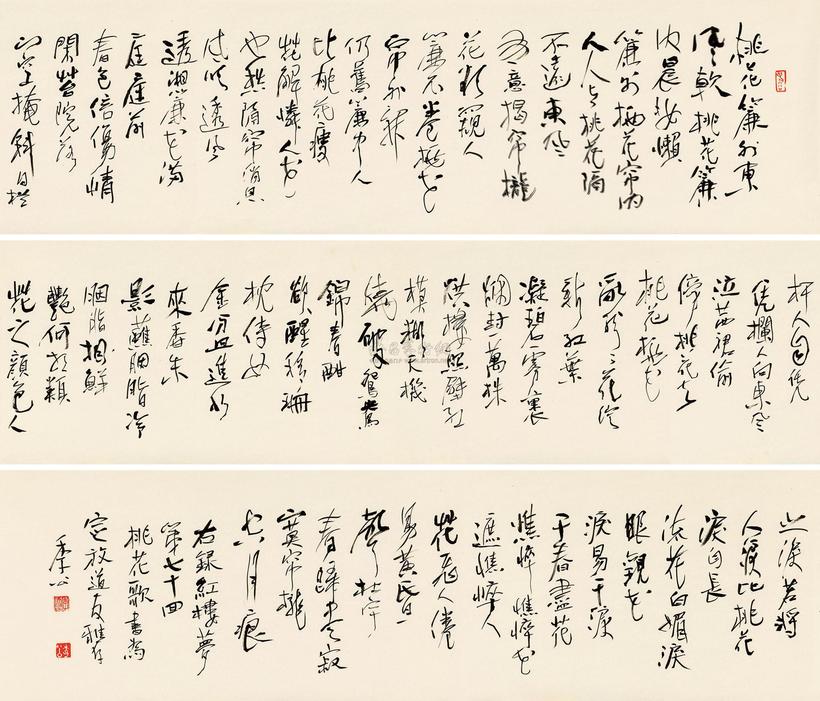 桃花簾外東
風軟桃花簾
內晨妝懶
簾外桃花帘內
人人与桃花隔
不遠東風
有意揭帘櫳
花欲窺人
簾不卷桃花
帘外開
仍舊簾中人
比桃花瘦
花解憐人花
也愁隔帘消息
風吹透風
透湘簾花滿
庭庭前
春色倍傷情
閑苔院落
門空掩斜日欄
杆人自凭
凭欄人向東風
泣茜裙偷
傍桃花立
桃花桃花
亂紛紛花綻
新紅葉
凝碧霧裹
烟封萬株
烘樓照壁紅
模糊天機
燒破鴛鴦
錦春酣
欲醒移珊
枕侍女
金盆進水
來香
影蘸胭脂冷
胭脂相鮮
艷何相類
花之顏色人
之淚若將
人淚比桃花
淚自長
流花自媚淚
眼觀花
淚易干淚
干春盡花
憔悴憔悴花
遮憔悴人
花飛人倦
易黃昏一
聲杜宇
春歸盡寂
寞帘櫳
空月痕
右錄紅樓夢
第七十回
桃花歌書為
放道友雅存
季公